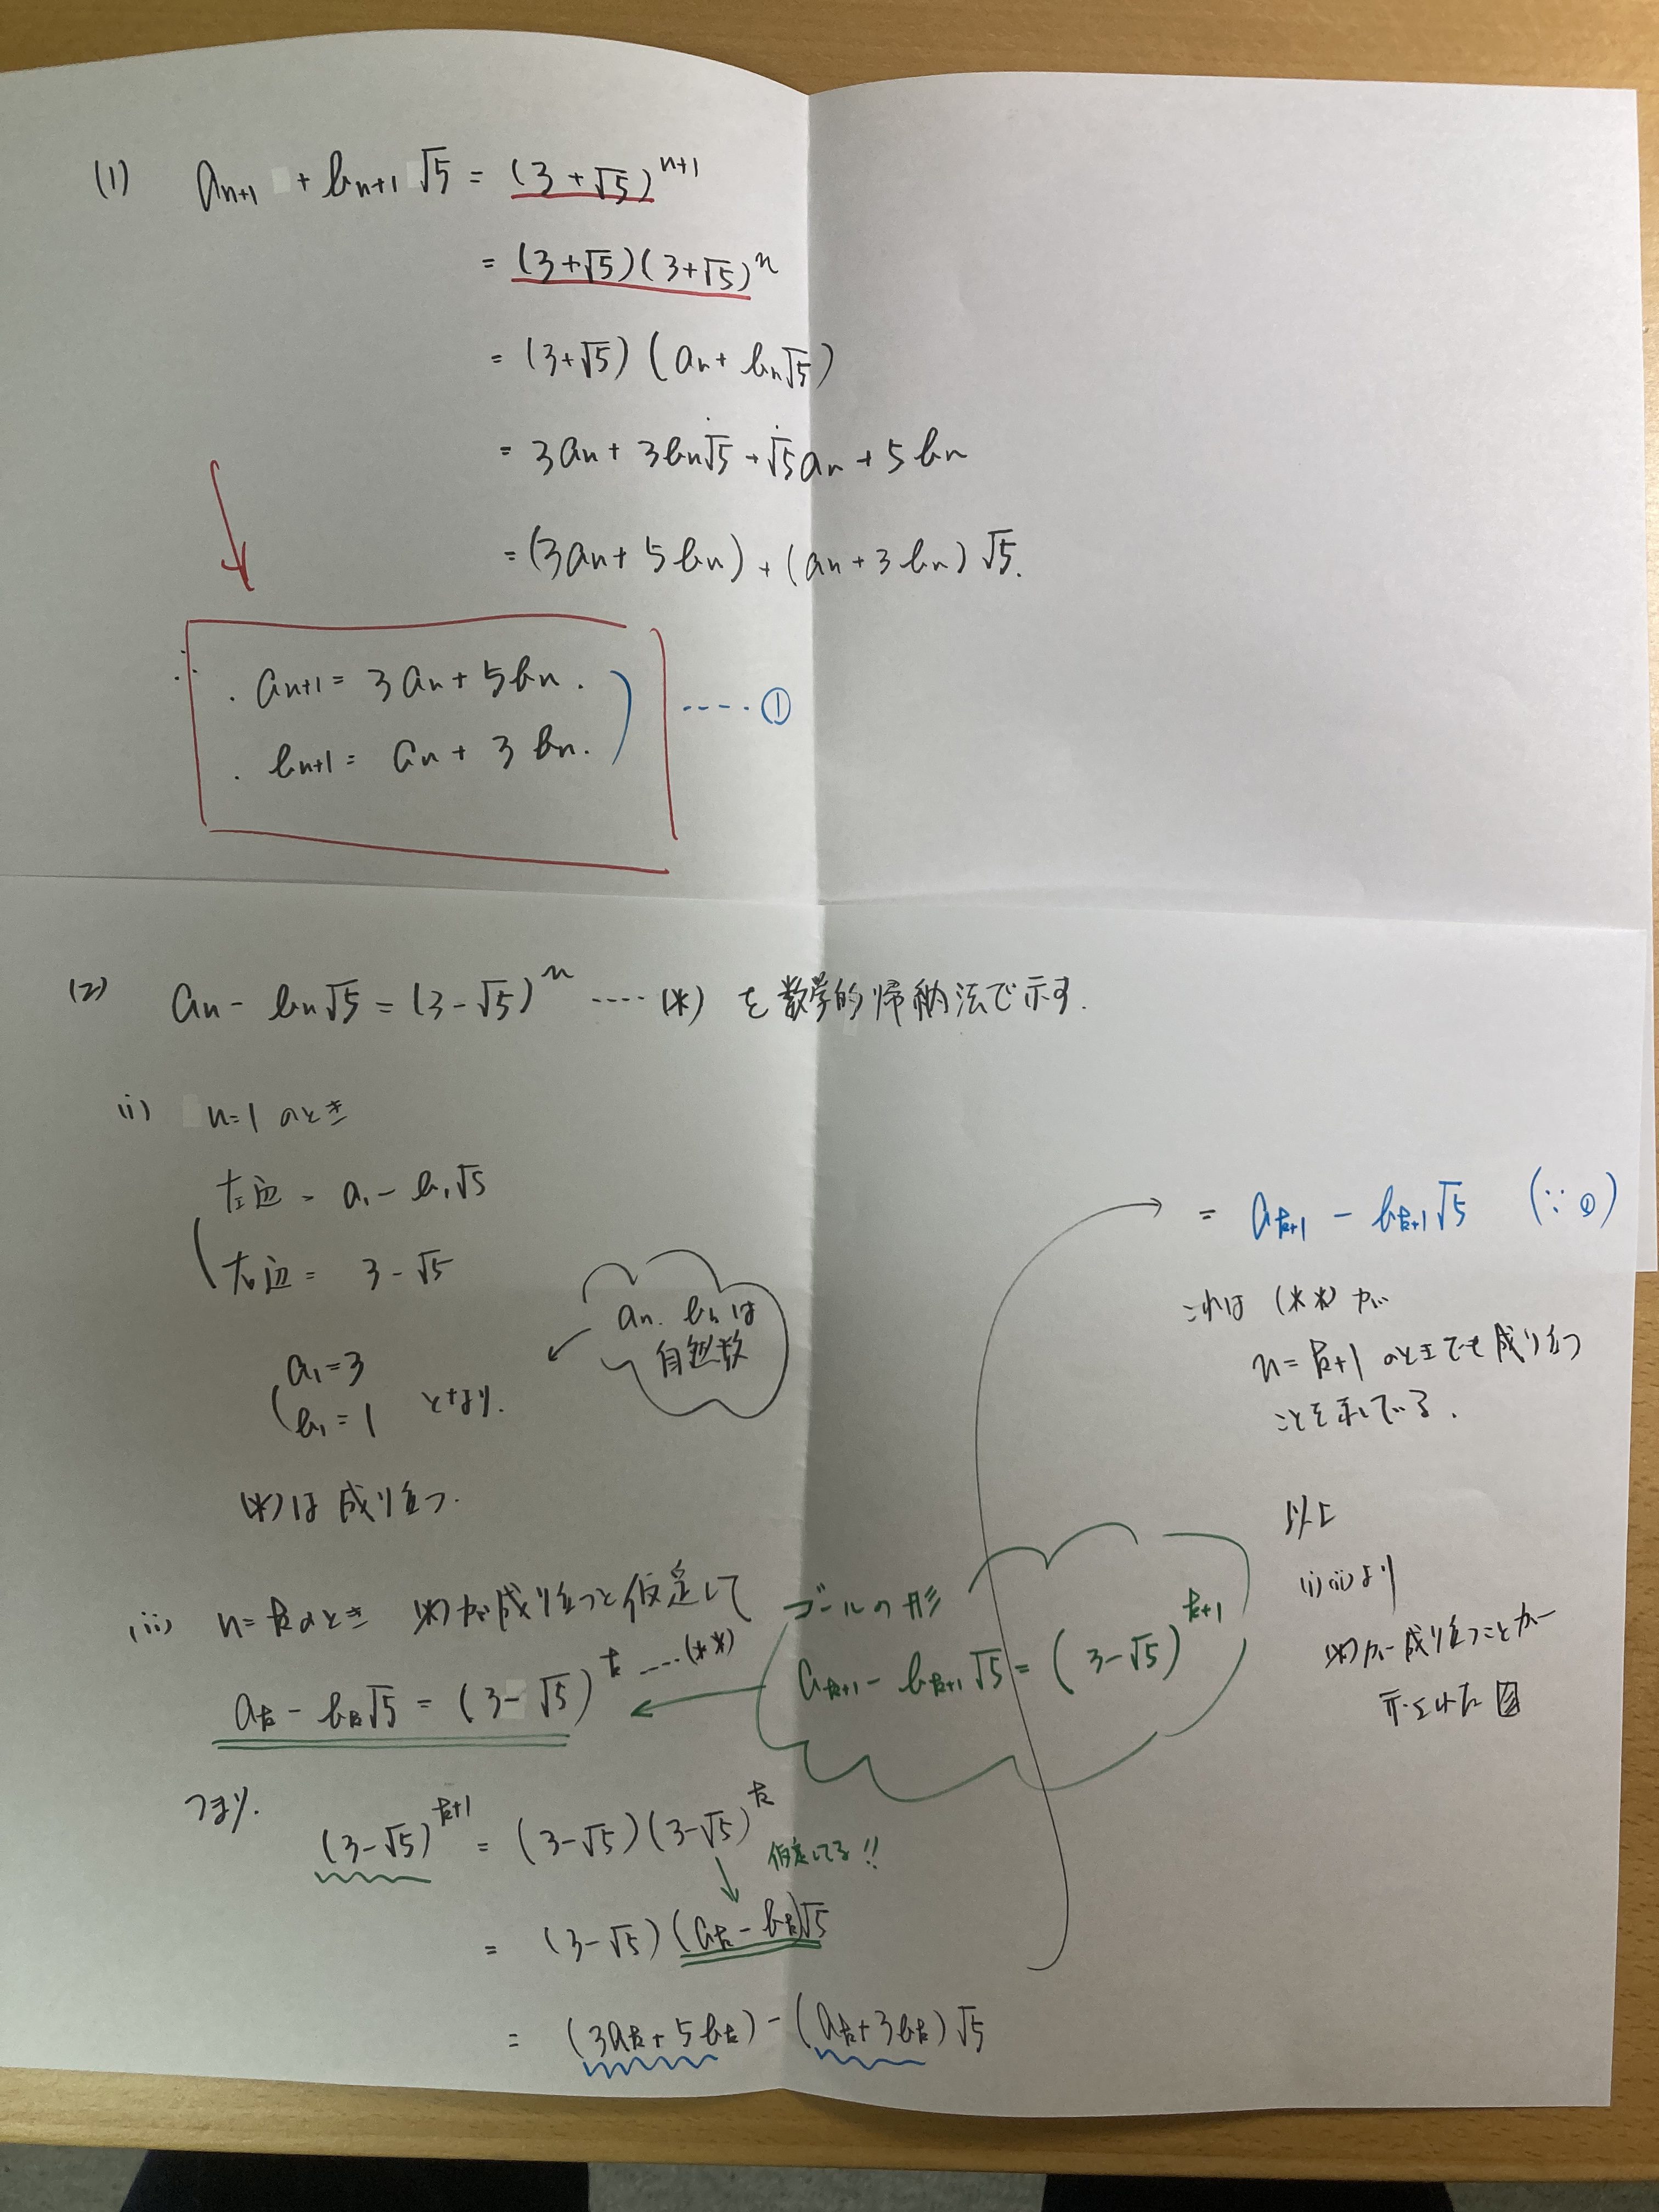 (1) a_{n+1} + b_{n+1}√5 = (3+√5)^{n+1}
= (3+√5)(3+√5)^n
= (3+√5)(a_n + b_n√5)
= 3a_n + 3b_n√5 + √5a_n + 5b_n
= (3a_n + 5b_n) + (a_n + 3b_n)√5.
∴ ・a_{n+1} = 3a_n + 5b_n. ‥‥①
・b_{n+1} = a_n + 3b_n.
(2) a_n - b_n√5 = (3-√5)^n ‥‥(*) を数学的帰納法で示す.
(i) n=1 のとき
左辺 = a_1 - b_1√5
右辺 = 3-√5
a_n, b_n は
自然数
a_1 = 3
b_1 = 1 となり.
(*)は成り立つ.
(ii) n=kのとき (*)が成り立つと仮定して
a_k - b_k√5 = (3-√5)^k ‥‥(**)
ゴールの形
a_{k+1} - b_{k+1}√5 = (3-√5)^{k+1}
つまり.
(3-√5)^{k+1} = (3-√5)(3-√5)^k
仮定してる!!
= (3-√5)(a_k - b_k)√5
= (3a_k + 5b_k) - (a_k + 3b_k)√5
= a_{k+1} - b_{k+1}√5 (∵①)
これは (**) が
n=k+1 のときでも成り立つ
ことを示している.
以上
(i)(ii)より
(*)が成り立つことが
示された